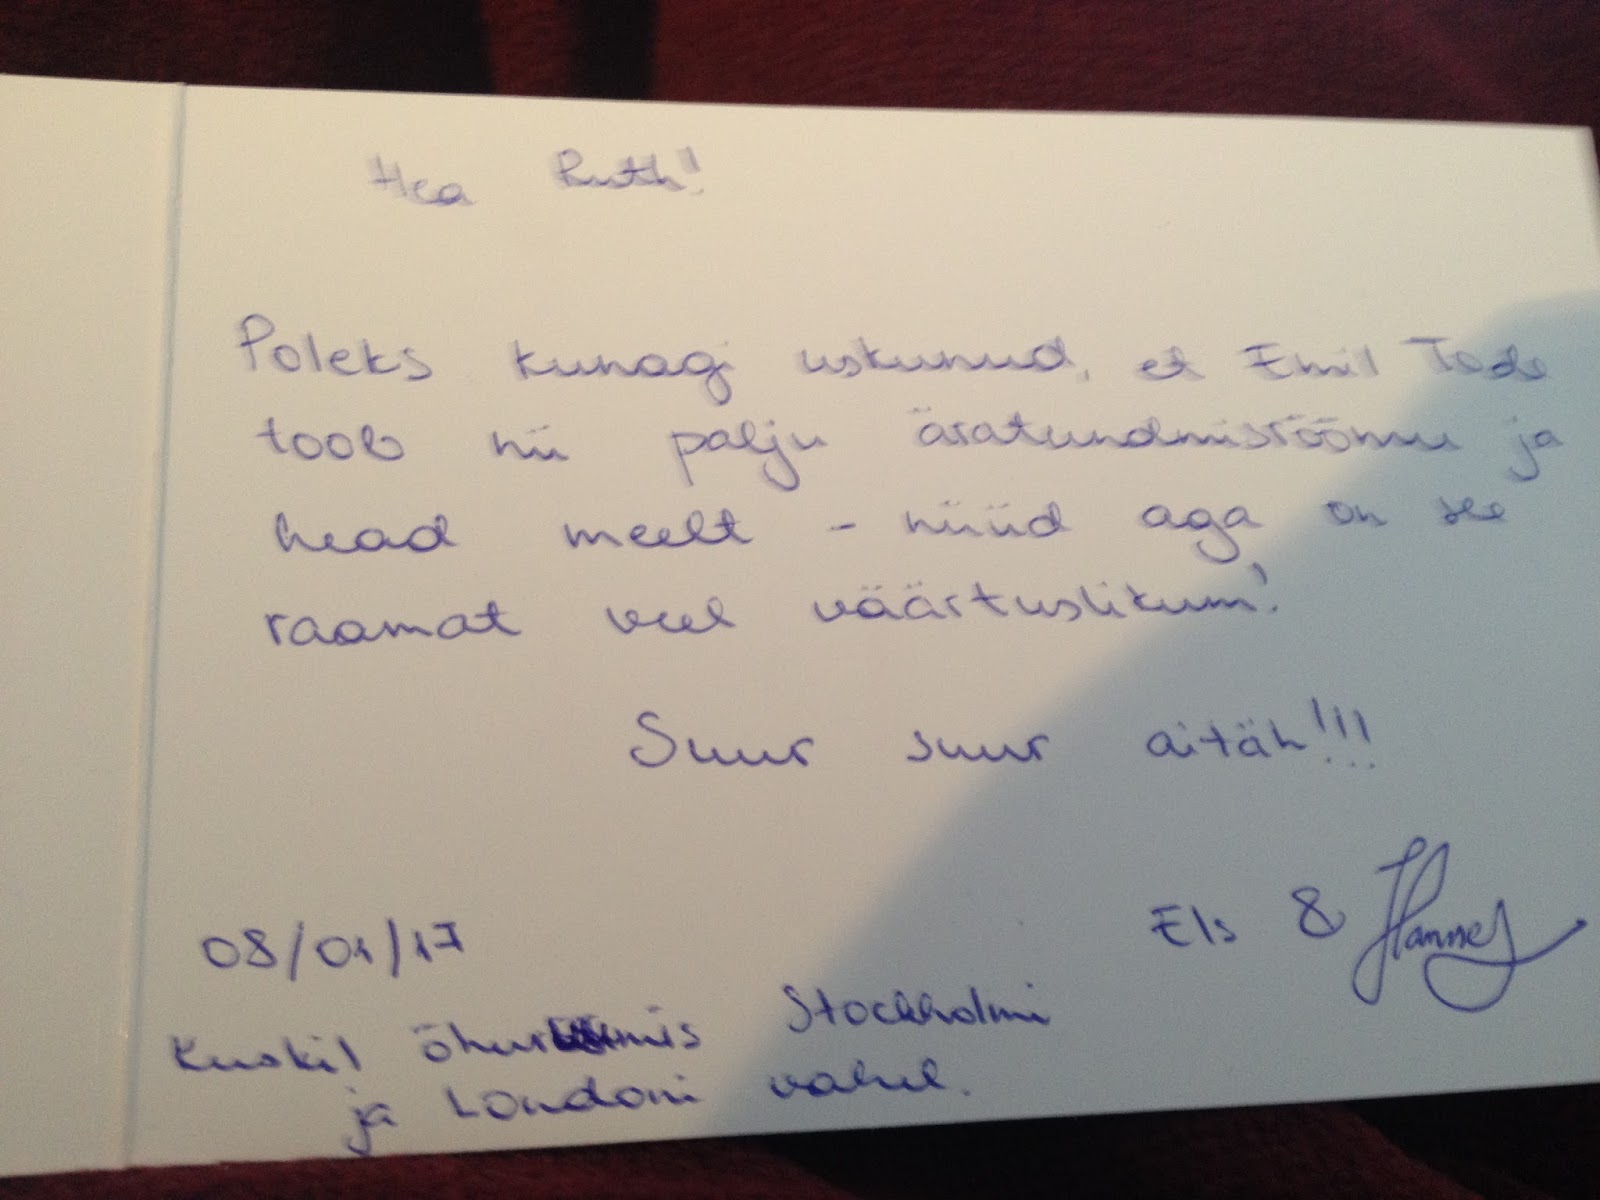 Hea Ruth!
Poleks kunagi uskunud, et Emil Tode
toob nii palju äratundmisrõõmu ja
head meelt - nüüd aga on see
raamat veel väärtuslikum!
Suur suur aitäh!!!
Els & Hannes
08/01/17
Kuskil õhuruumis Stockholmi
ja Londoni vahel.